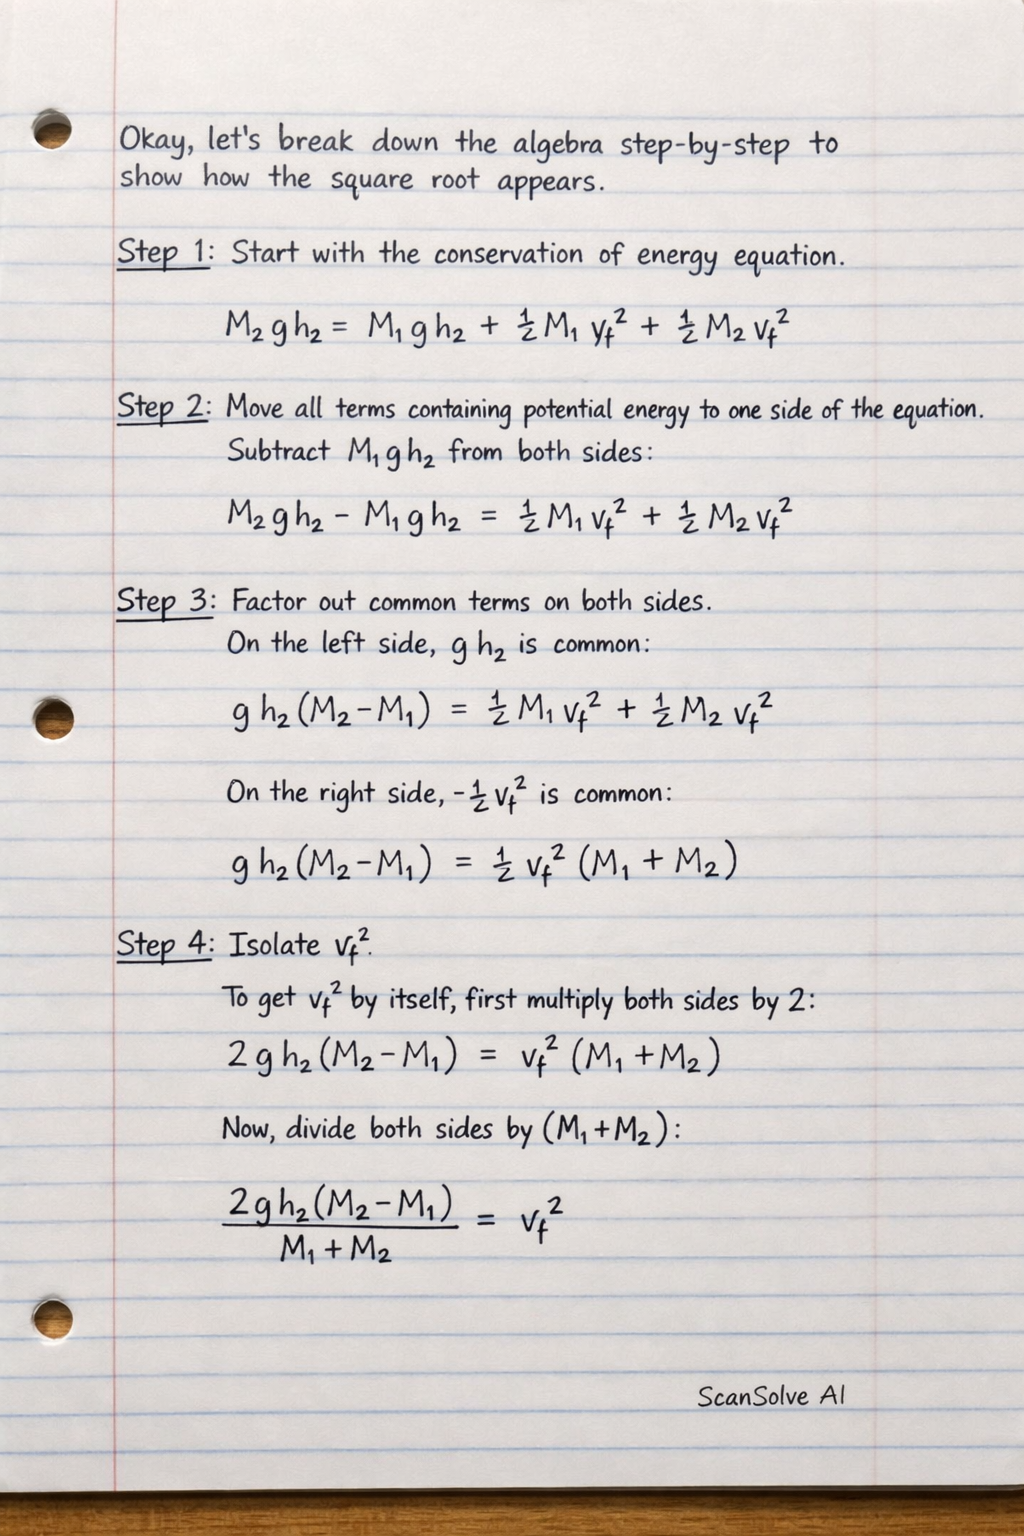 Okay, let's break down the algebra step-by-step to
show how the square root appears.
Step 1: Start with the conservation of energy equation.
M₂ g h₂ = M₁ g h₂ + ½ M₁ y_f² + ½ M₂ v_f²
Step 2: Move all terms containing potential energy to one side of the equation.
Subtract M₁ g h₂ from both sides:
M₂ g h₂ − M₁ g h₂ = ½ M₁ v_f² + ½ M₂ v_f²
Step 3: Factor out common terms on both sides.
On the left side, g h₂ is common:
g h₂ (M₂ − M₁) = ½ M₁ v_f² + ½ M₂ v_f²
On the right side, -½ v_f² is common:
g h₂ (M₂ − M₁) = ½ v_f² (M₁ + M₂)
Step 4: Isolate v_f².
To get v_f² by itself, first multiply both sides by 2:
2 g h₂ (M₂ − M₁) = v_f² (M₁ + M₂)
Now, divide both sides by (M₁ + M₂):
2 g h₂ (M₂ − M₁) / M₁ + M₂ = v_f²
ScanSolve AI